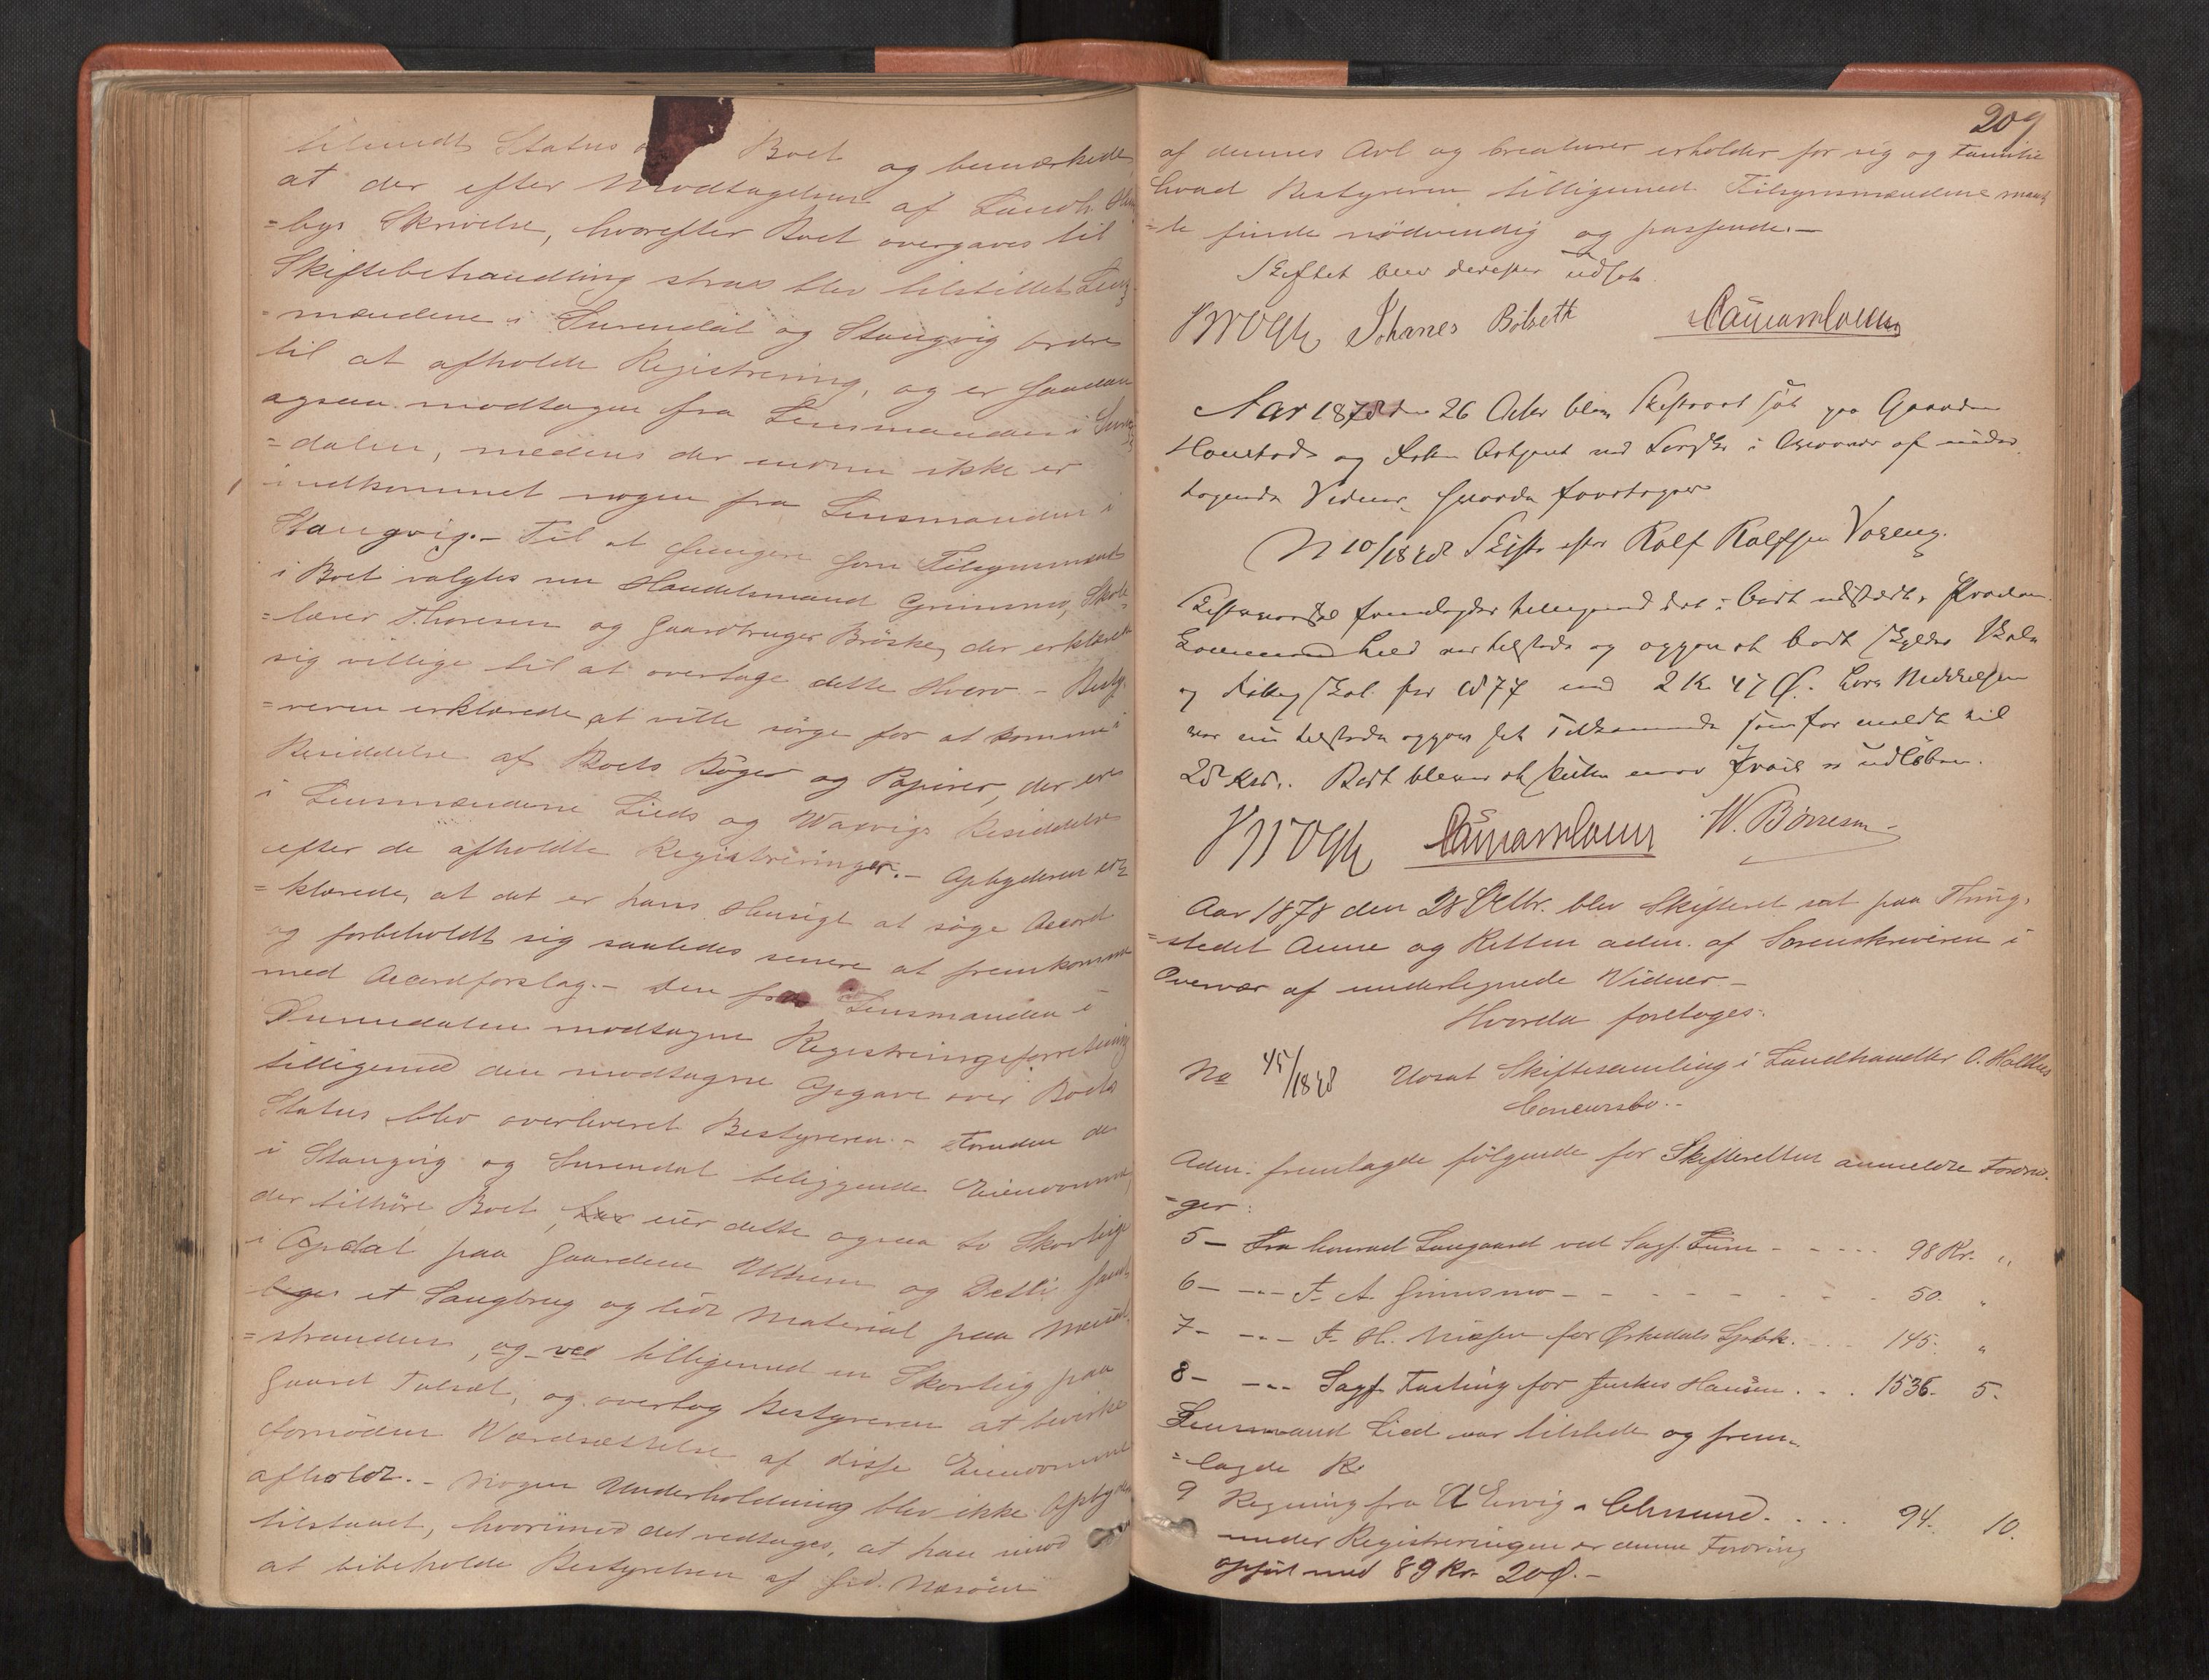 Status Boet og bemærkede,
at der efter Modtagelsen af Landh. 
=bys Skrivelse, hvorefter Boet overgaves til
Skiftebehandling strax blev tilstillet Lens
=mændene i Surendal og Stangvig ordre
til at afholde Registrering, og er saadan
ogsaa modtagen fra Lensmanden i Suren
=dalen, medens der endnu ikke er
indkommet nogen fra Lensmanden i
Stangvig.- Til at fungere som Tilsynsmænd
i Boet valgtes nu Handelsmand Grimsmo, Skole
=lærer Thoresen og Gaardbruger Brøske, der erklærede
sig villige til at overtage dette Hverv - Besty
=reren erklærede at ville sørge for at komme i
Besiddelse af Boets Bøger og Papirer, der ere
i Lensmændene Lieds og Waxvigs Besiddelse
efter de afholdte Registreringer.- Opbyderen er=
=klærede, at det er hans Hensigt at søge Accord
og forbeholdt sig saaledes senere at fremkomme
med Accordforslag.- Den fra Lensmanden i
Surendalen modtagne Registreringsforretning
tilligemed den modtagne Opgave over Boets
Status blev overleveret Bestyreren.- Foruden de
i Stangvig og Surendal beliggende Eiendomme,
der tilhøre Boet, har eier dette ogsaa to Skovteige
i Opdal paa Gaardene og Detli 
et Saugbrug og lidt Material paa 
=stranden, og ved tilligemed en Skovteig paa
Gaard , og overtog Bestyreren at bevirke
fornøden Værdsættelse af disse Eiendomme
afholdt.- Nogen Underholdning blev ikke Opbyderen
tilstaaet, hvorimod det vedtoges, at han mod
at bibeholde Bestyrelsen af Grd. Næröen
209
af dennes Avl og Creaturer erholder for sig og Familie
hvad Bestyreren tilligemed Tilsynsmændene maat
=te finde nødvendig og passende.-
Skiftet blev derefter udsat.
Johanes Bölseth
Aar 1878 den 26 Octbr blev Skifteret sat paa Gaarden
Honstad og Retten betjent ved i Overvær af under
tegnede Vidner, Hvorda foretoges
N 10/1878 Skifte efter Rolf Rolfsen Voleng.
fremlagdes tilligemed det i Boet udstædte Proclam.
Lensmand Lied var tilstede og opgav at Boet skylder Skole
og for 1877 med 2 Kr 47 Ø. Lars Mikkelsen
var nu tilstede opgav sit Tilkommende som før anmeldt til
28 Kr.. Boet blev at slutte naar Procl er udløben.
W. Börresen
Aar 1878 den 28 Octbr. blev Skifteret sat paa Thing,
=stedet Aune og Retten adm. af Sorenskriveren i
Overvær af undertegnede Vidner -
Hvorda foretoges:
No 45/1878 Udsat Skiftesamling i Landhandler O. Holdens
Concursbo.-
Adm. fremlagde følgende for Skifteretten anmeldte Fordrin-
=ger:
5 - Fra Conrad Langaard ved Sagf. Finne - - - - - 98 Kr. "
6 - - - - F. A. Grimsmo - - - - - - - - 50. "
7 - - - - F. H. Nissen for Ørkedals Spbk. - - - 145. "
8 - - - - Sagf. Fasting for Jenkes Hansen . . . 1536. 5.
Lensmand Lied var tilstede og frem-
=lagde
9 Regning fra A Ervig - Chrsund. . . . . 94. 10.
under Registreringen er denne Fordring
opført med 89 Kr. 20 Ø.-